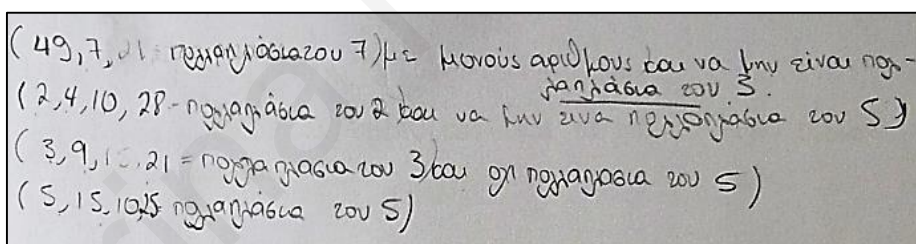 (49,7, 21 πολλαπλάσια του 7) με μονούς αριθμους και να μην είναι πολ-
λαπλάσια του 3.
(2,4,10, 28 - πολλαπλάσια του 2 και να μην είνα πολλαπλάσια του 5)
(3,9, 21 = πολλαπλασια του 3 και οχι πολλαπλάσια του 5)
(5,15,10,25 πολλαπλάσια του 5)